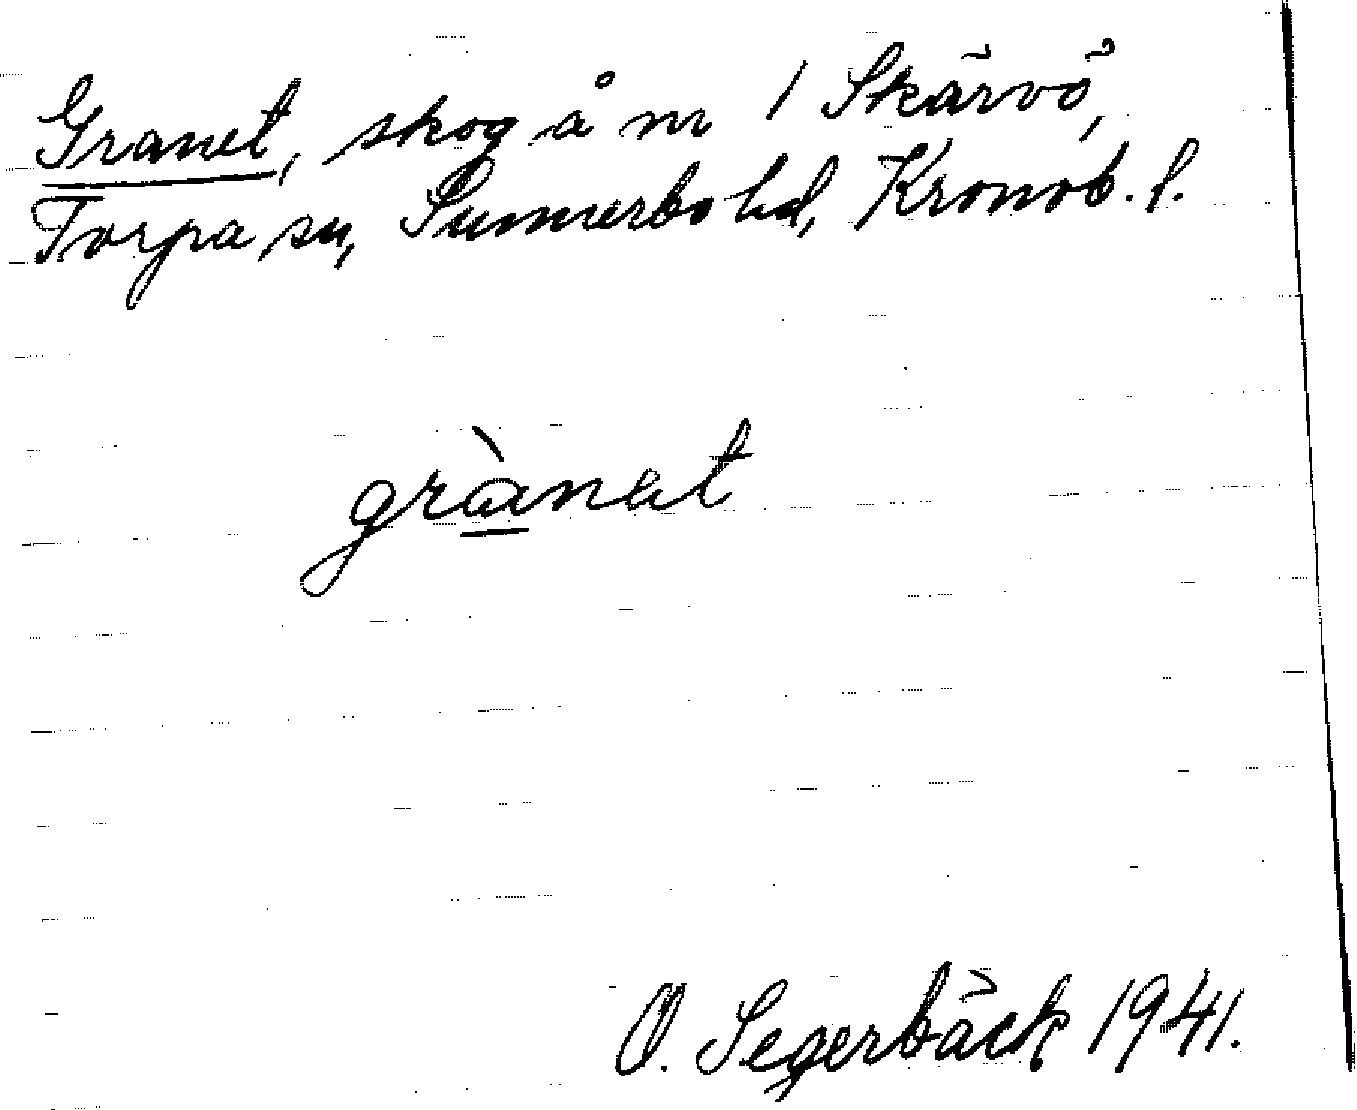 Granet, skog å nr 1 Skärvö,
Torpa sn, Sunnerbo hd, Kronob. l.
grànat
O. Segerbäck 1941.